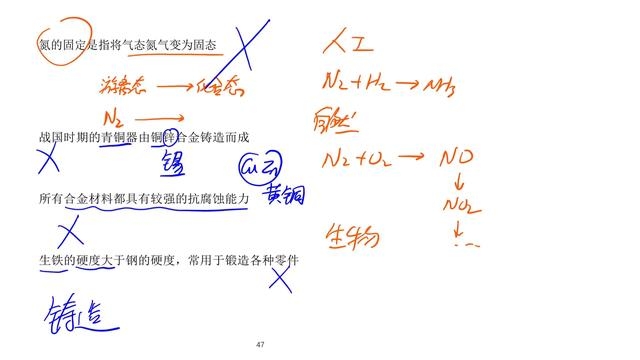 氮的固定是指将气态氮气变为固态
游离态 → 化合态
N₂ →
战国时期的青铜器由铜锌合金铸造而成
锡
Cu Zn
黄铜
所有合金材料都具有较强的抗腐蚀能力
生铁的硬度大于钢的硬度，常用于锻造各种零件
铸造
人工
N₂+H₂ → NH₃
自然
N₂+O₂ → NO
↓
NO₂
↓
...
生物
47